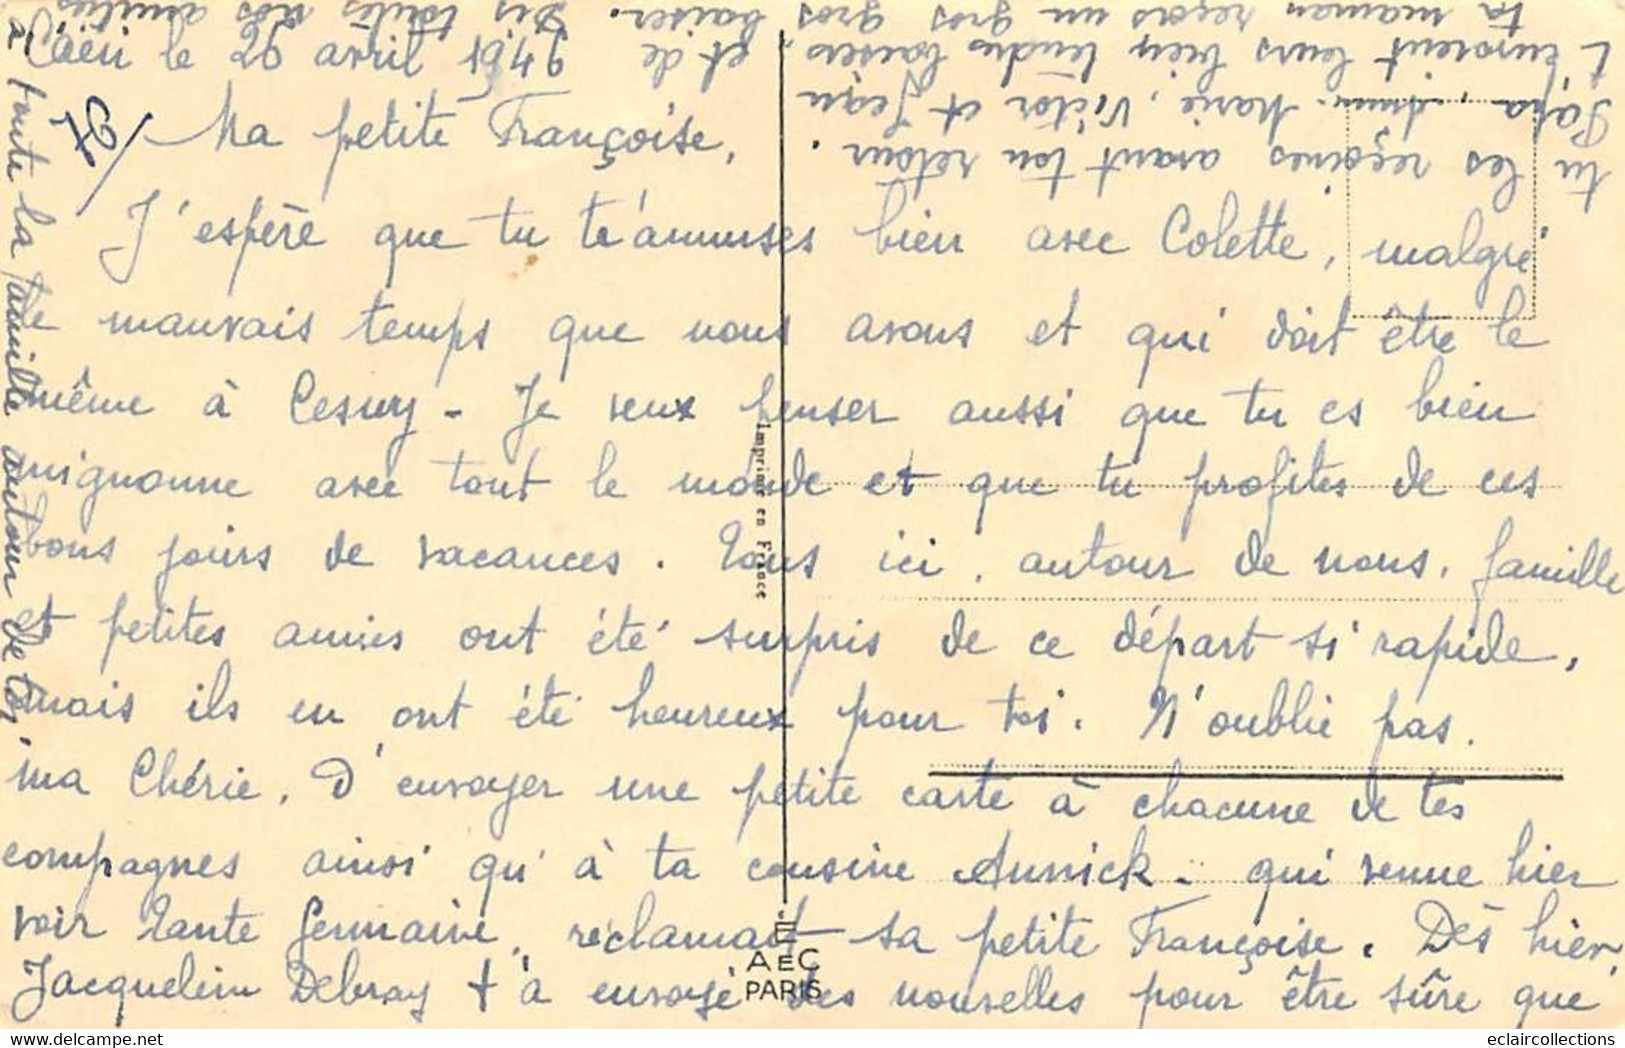 Caen le 26 avril 1949
Ma petite Françoise,
J'espère que tu t'amuses bien avec Colette, malgré
le mauvais temps que nous avons et qui doit être le
même à Cesny - Je veux penser aussi que tu es bien
mignonne avec tout le monde et que tu profites de ces
bons jours de vacances. Tous ici, autour de nous, famille
et petites amies ont été surpris de ce départ si rapide,
mais ils en ont été heureux pour toi. N'oublie pas,
ma Chérie, d'envoyer une petite carte à chacune de tes
compagnes ainsi qu'à ta cousine Annick - qui venue hier
voir tante Germaine, réclamait sa petite Françoise. Dès hier,
Jacqueline Debray t'a envoyé des nouvelles pour être sûre que
tu les reçoives avant ton retour.
Papa, Marie, Victor et Jean
t'envoient leurs bien tendres baisers,
ta maman reçois un gros gros baiser. Dis toutes nos amitiés
à toute la famille autour de toi
et de
Imprimé en France
AEC
PARIS
eclaircollections